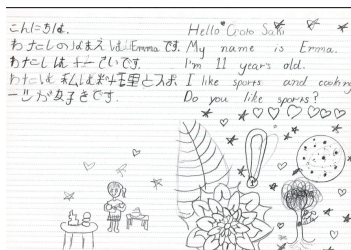 こんにちは。
わたしのなまえは Emma です.
わたしは 十一さいです.
わたしは
ーツが好きです。
Hello Goto Saki
My name is Emma.
I'm 11 year's old.
I like sports and cooking
Do you like sports?